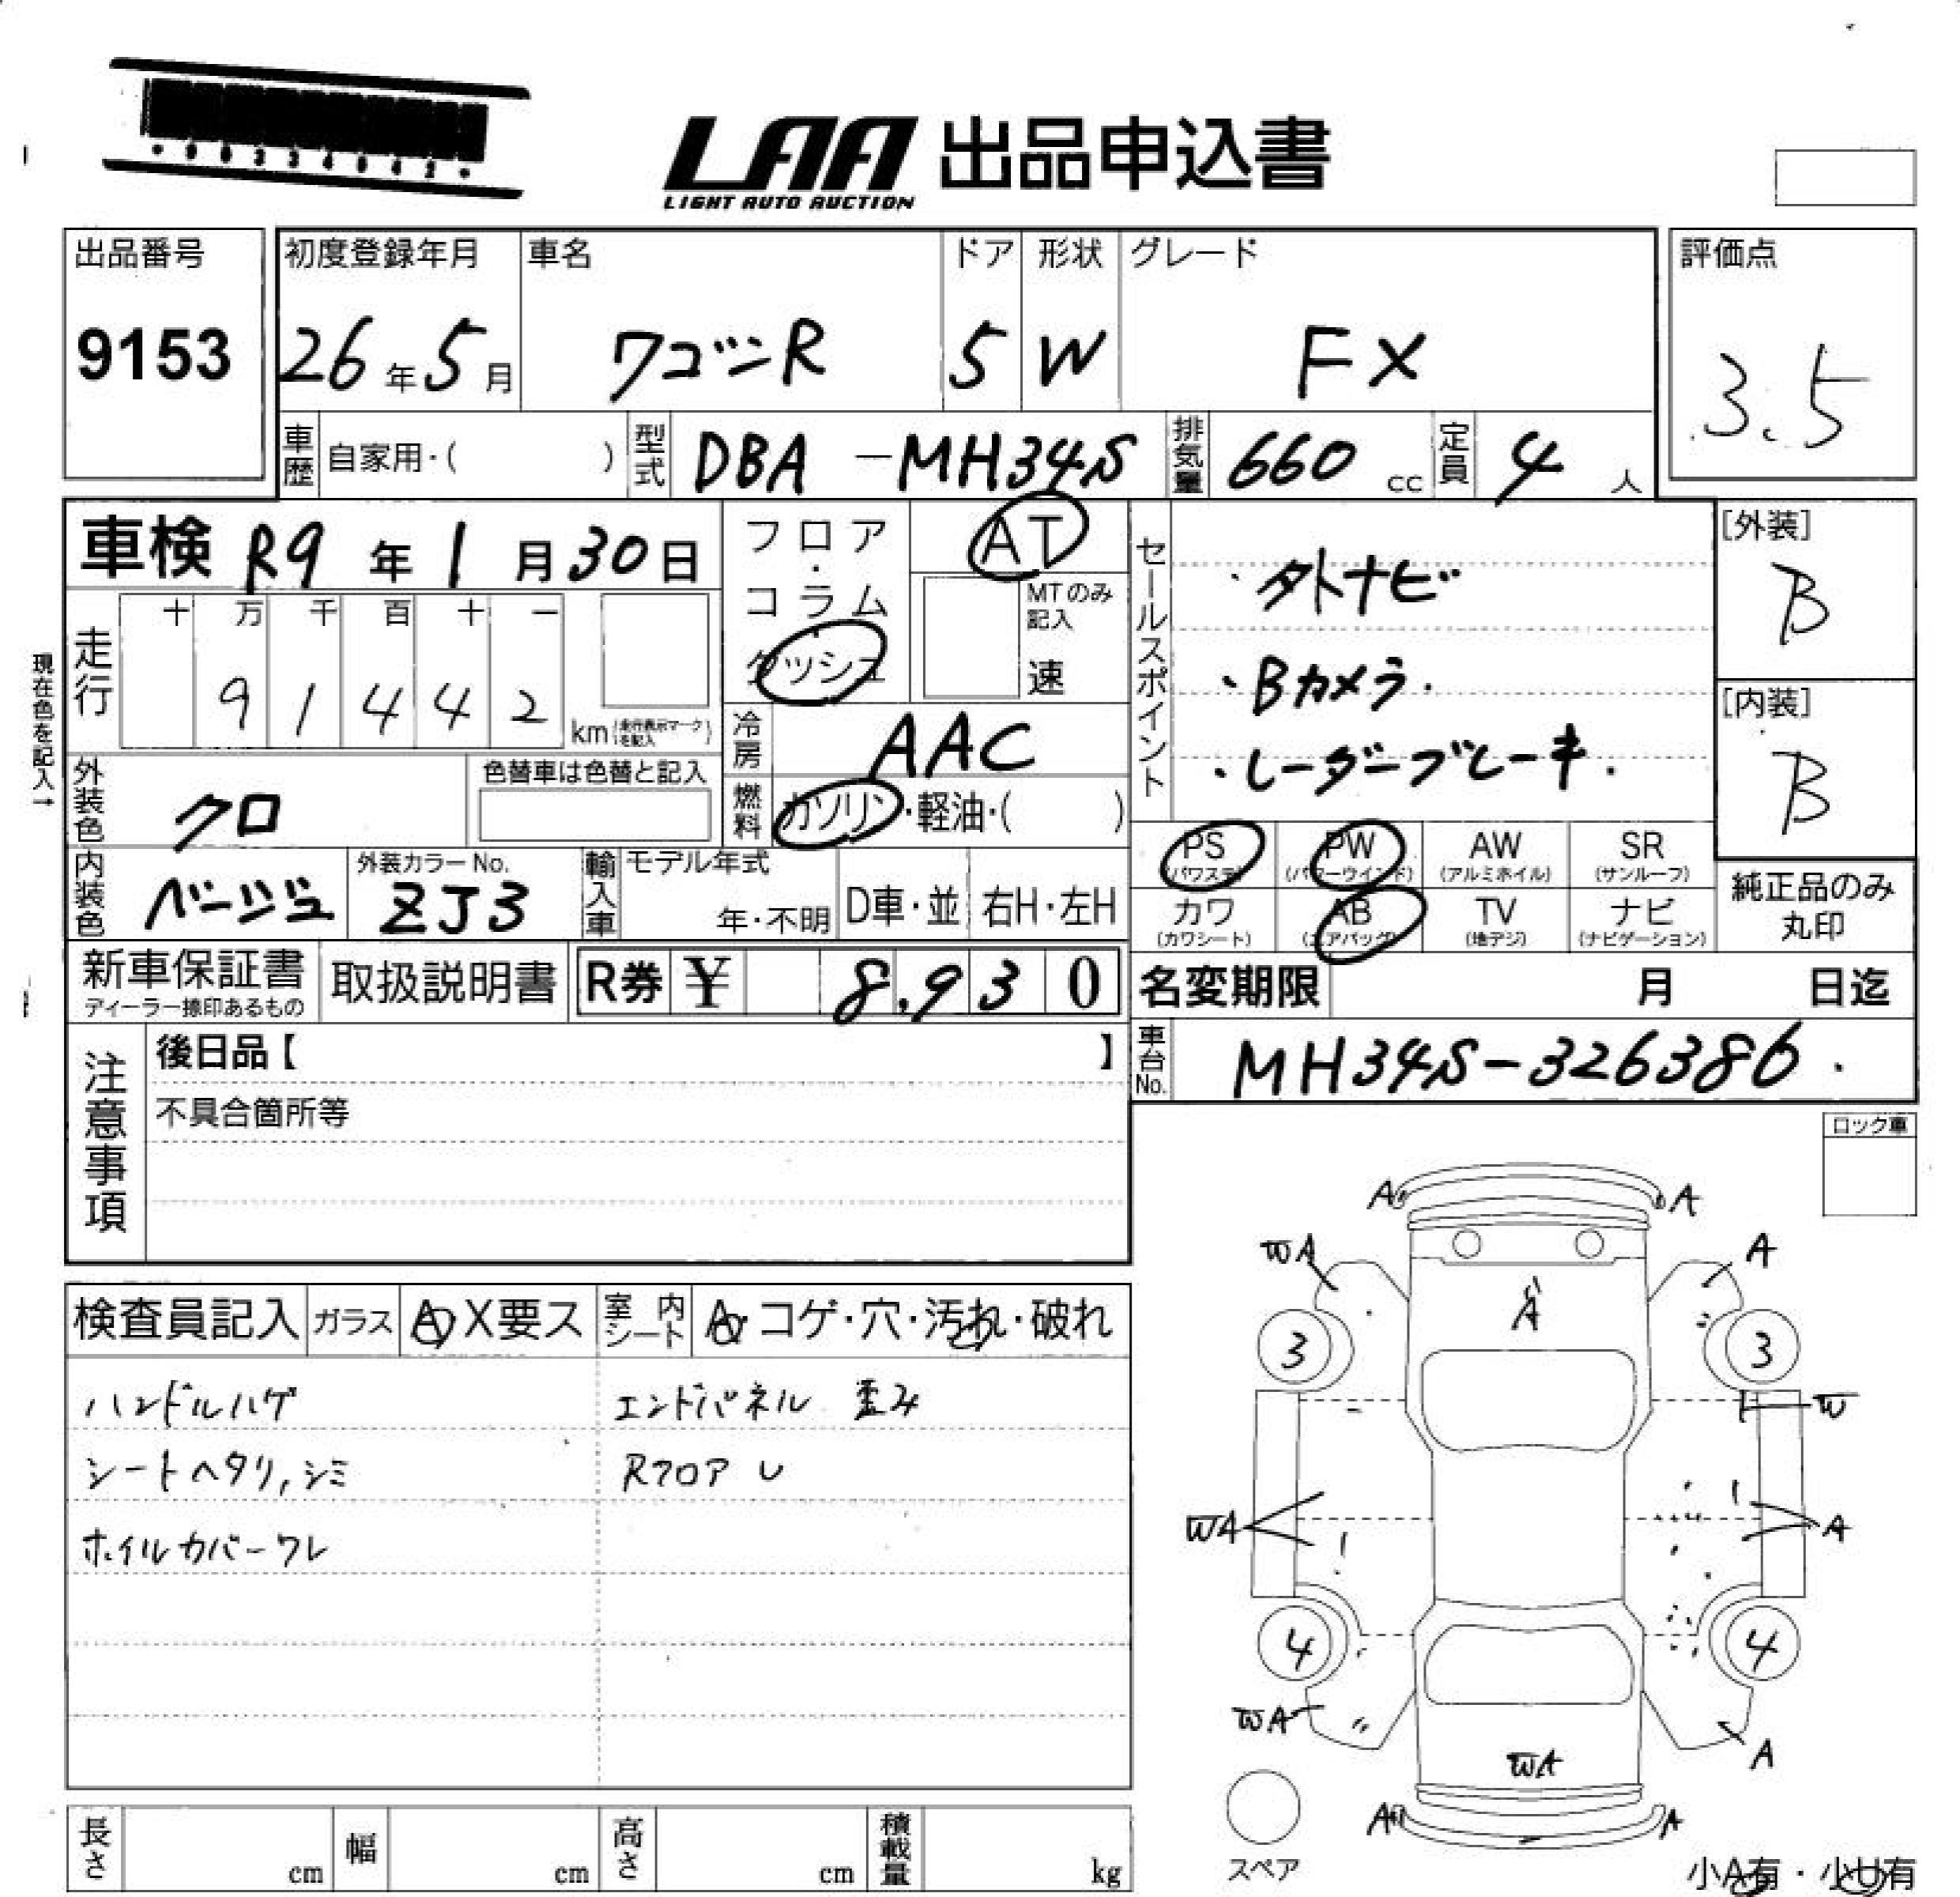 LAA 出品申込書
LIGHT AUTO AUCTION
出品番号 9153
初度登録年月 26年5月
車名 ワゴンR
ドア 5
形状 W
グレード FX
評価点 3.5
車歴 自家用・( )
型式 DBA-MH34S
排気量 660 cc
定員 4人
車検 R9年1月30日
フロア・コラム・ダッシュ
AT
MTのみ記入 速
走行 十 万 千 百 十 一
9 1 4 4 2 km (走行表示マークを記入)
現在色を記入→
冷房 AAC
燃料 ガソリン・軽油・( )
外装色 クロ
色替車は色替と記入
内装色 ベージュ
外装カラーNo. ZJ3
輸入車 モデル年式 年・不明 D車・並 右H・左H
セールスポイント
・外ナビ
・Bカメラ.
・レーダーブレーキ.
[外装] B
[内装] B
PS (パワステ) PW (パワーウインド) AW (アルミホイル) SR (サンルーフ)
カワ (カワシート) AB (エアバッグ) TV (地デジ) ナビ (ナビゲーション)
純正品のみ丸印
新車保証書 ディーラー捺印あるもの
取扱説明書
R券 ¥ 8,930
名変期限 月 日迄
車台No. MH34S-326386.
注意事項
後日品【 】
不具合箇所等
ロック車
検査員記入 ガラス A・X要ス 室内シート A・コゲ・穴・汚れ・破れ
ハンドルハゲ エンドパネル 歪み
シートヘタリ,シミ Rフロア U
ホイルカバーワレ
A A
WA A
A
3 3
W
WA A
4 4
WA A
WA
A A
スペア
小A有・小U有
長さ cm 幅 cm 高さ cm 積載量 kg